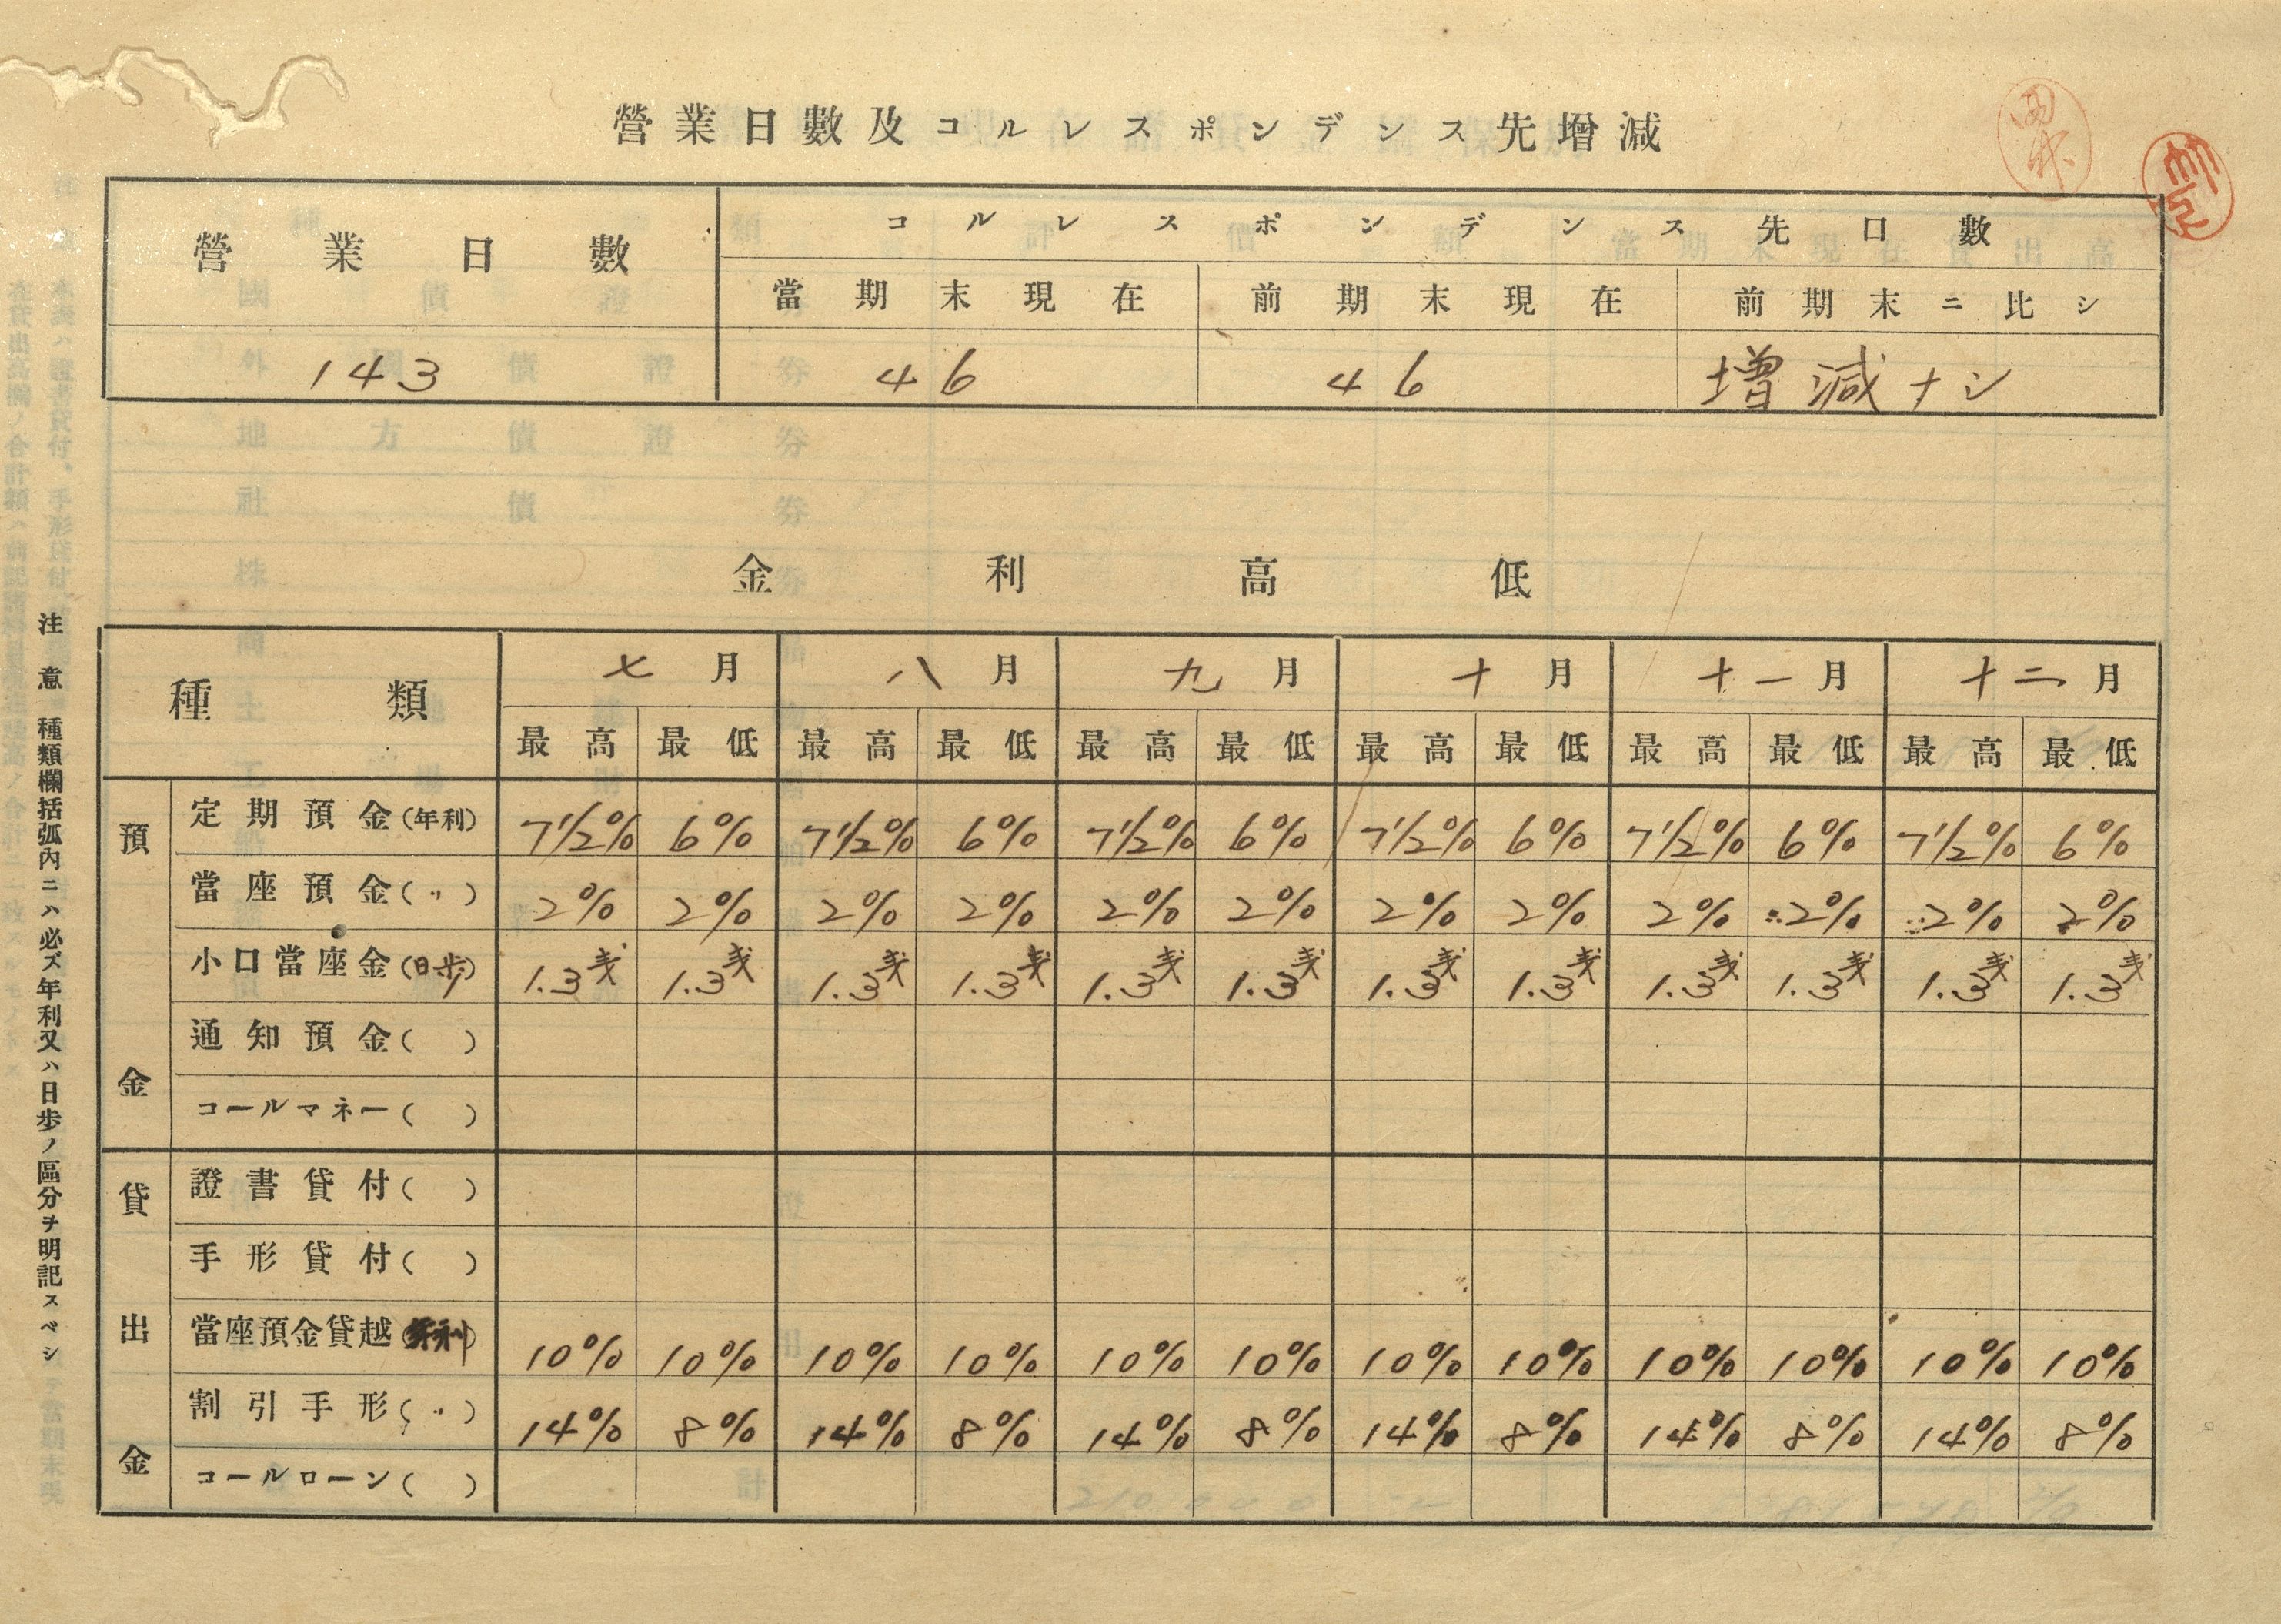 營業日數及コルレスポンデンス先增減
營業日數 コルレスポンデンス先口數
當期末現在 前期末現在 前期末ニ比シ
143 46 46 增減ナシ
金利高低
種類 七月 八月 九月 十月 十一月 十二月
最高 最低 最高 最低 最高 最低 最高 最低 最高 最低 最高 最低
預金
定期預金(年利) 7 1/2% 6% 7 1/2% 6% 7 1/2% 6% 7 1/2% 6% 7 1/2% 6% 7 1/2% 6%
當座預金(〃) 2% 2% 2% 2% 2% 2% 2% 2% 2% 2% 2% 2%
小口當座金(日歩) 1.3戋 1.3戋 1.3戋 1.3戋 1.3戋 1.3戋 1.3戋 1.3戋 1.3戋 1.3戋 1.3戋 1.3戋
通知預金( )
コールマネー( )
貸出金
證書貸付( )
手形貸付( )
當座預金貸越(年利) 10% 10% 10% 10% 10% 10% 10% 10% 10% 10% 10% 10%
割引手形(〃) 14% 8% 14% 8% 14% 8% 14% 8% 14% 8% 14% 8%
コールローン( )
注意 種類欄括弧內ニハ必ズ年利又ハ日歩ノ區分ヲ明記スベシ